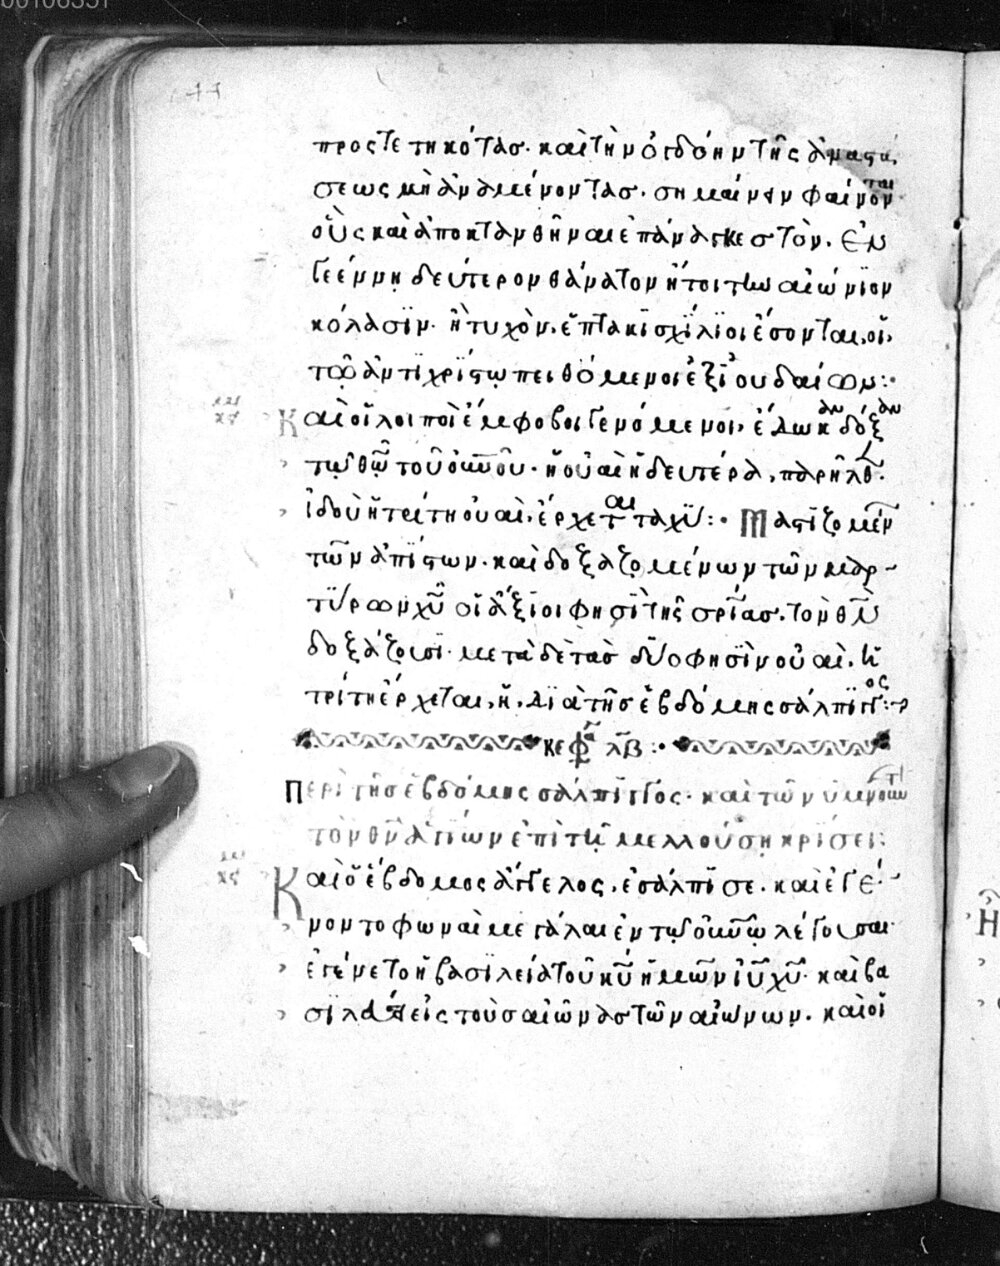 προστετηκότας· καὶ τὴν ὀγδόην τῆς ἀναστά,
σεως μὴ ἀναμένοντας. σημαίνειν φαίνον ται
οὓς καὶ ἀποκτανθῆναι ἐπάναγκες τὸν. ἐν
γεέννη δεύτερον θάνατον ἤτοι τὴν αἰώνιον
κόλασϊν· ἢ τυχὸν, ἑπτακισχίλϊοι ἔσονται, οἱ,
τῷ ἀντϊχρίστω πειθόμενοι ἐξ ἰουδαίων:·
Καὶ οἱ λοιποὶ ἔμφοβοι γενόμενοι, ἔδωκαν δόξαν
τῷ θῷ τοῦ οὐνοῦ· ἡ οὐαὶ ἡ δευτέρα, παρῆλθ.
ἰδοὺ ἡ τρίτη οὐαὶ, ἔρχεται ταχϋ:· Μαστϊζομέν
τῶν ἀπΐστων. καὶ δοξαζομένων τῶν μαρ-
τΰρων χῦ οἱ ἄξϊοι φησὶ τῆς σρίας. τὸν θν
δοξάζουσϊ· μετὰ δὲ τὰς δύο φησὶν οὐαὶ. ἡ
τρίτη ἔρχεται, ἡ, δϊὰ τῆς ἑβδόμης σάλπιγγος:-
κεφ λβ:·
Περὶ τῆς ἑβδόμης σάλπϊγγος· καὶ τῶν ὑμνούντων
τὸν θν ἁγίων ἐπὶ τῆ μελλούση κρίσει:
Καὶ ὁ ἕβδομος ἄγγελος, ἐσάλπϊσε. καὶ ἐγέ-
νοντο φωναὶ μεγάλαι ἐν τῷ οὐνῷ λέγουσαι·
ἐγένετο ἡ βασϊλεία τοῦ κῦ ἡμῶν ἰῦ χῦ· καὶ βα
σϊλεύει εἰς τοὺς αἰῶνας τῶν αἰώνων. καὶ οἱ